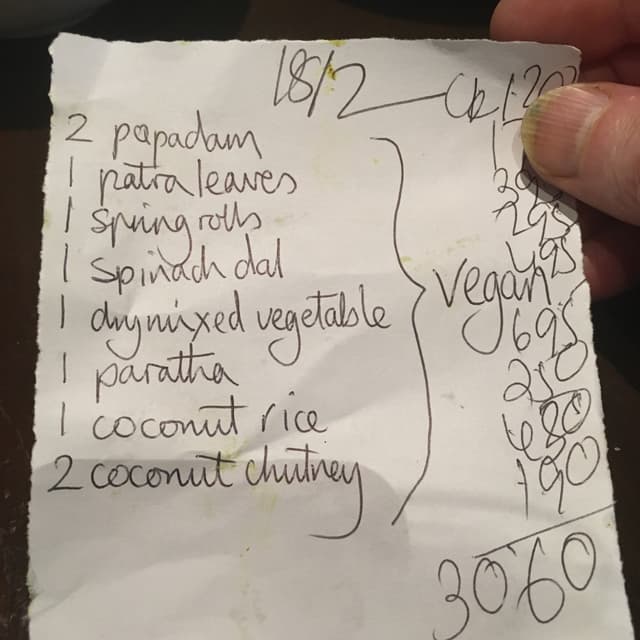 18/2
2 papadam
1 patra leaves
1 spring rolls
1 spinach dal
1 dry mixed vegetable
1 paratha
1 coconut rice
2 coconut chutney
vegan
295
495
695
250
190
3060